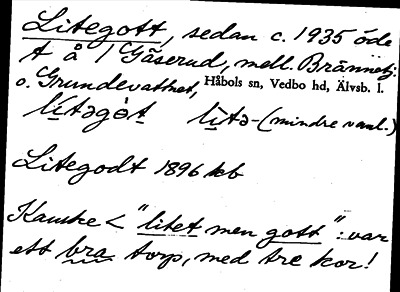 Litegott, sedan c. 1935 öde
t å 1 Gäserud, mell. Brännebj.
o. Grundevattnet, Håbols sn, Vedbo hd, Älvsb. l.
lítəgòt lìtə-(mindre vanl.)
Litegodt 1896 kb
Kanske < "litet men gott": var
ett bra torp, med tre kor!